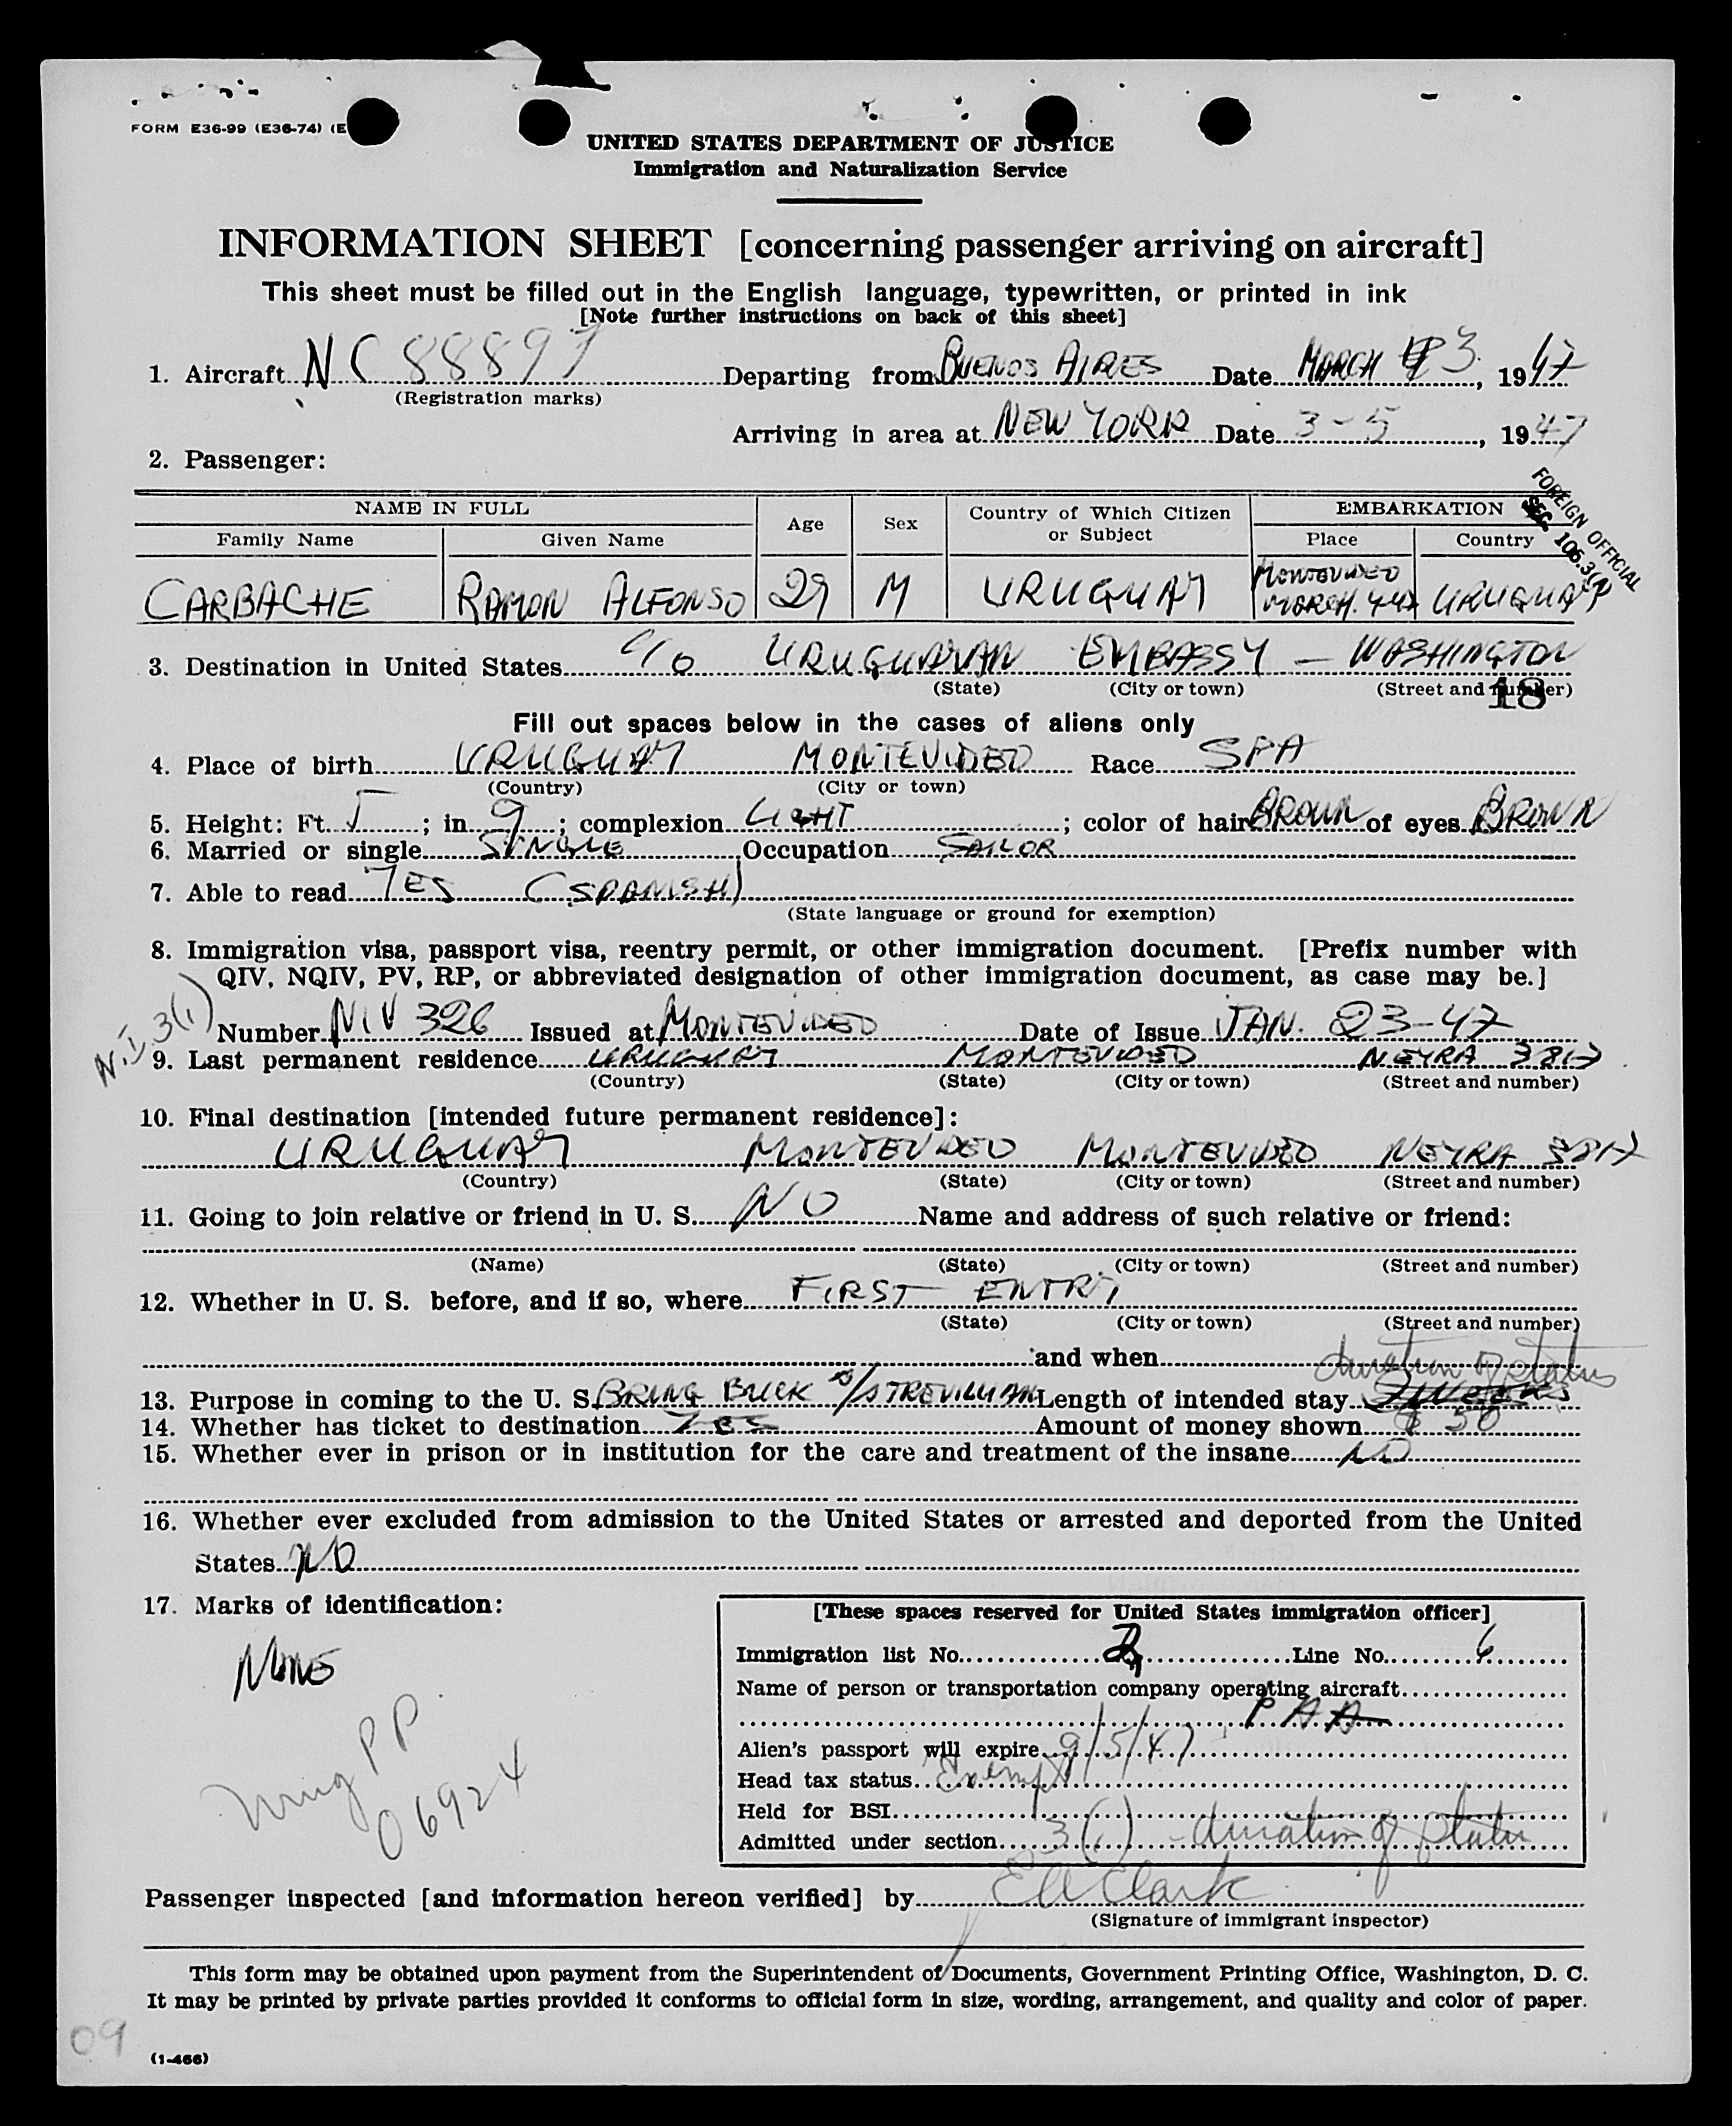 FORM E36-99 (E36-74) (E
UNITED STATES DEPARTMENT OF JUSTICE
Immigration and Naturalization Service
INFORMATION SHEET [concerning passenger arriving on aircraft]
This sheet must be filled out in the English language, typewritten, or printed in ink
[Note further instructions on back of this sheet]
1. Aircraft NC 88897 Departing from BUENOS AIRES Date MARCH 3, 1947
(Registration marks)
Arriving in area at NEW YORK Date 3-5, 1947
2. Passenger:
FOREIGN OFFICIAL
NAME IN FULL Age Sex Country of Which Citizen or Subject EMBARKATION
SEC. 106.3(A)
Family Name Given Name Place Country
CARBACHE RAMON ALFONSO 29 M URUGUAY MONTEVIDEO MARCH. 4-47 URUGUAY
3. Destination in United States c/o URUGUAYAN EMBASSY — WASHINGTON
(State) (City or town) (Street and number)
18
Fill out spaces below in the cases of aliens only
4. Place of birth URUGUAY MONTEVIDEO Race SPA
(Country) (City or town)
5. Height: Ft. 5; in. 9; complexion LIGHT; color of hair BROWN of eyes BROWN
6. Married or single SINGLE Occupation SAILOR
7. Able to read YES (SPANISH)
(State language or ground for exemption)
8. Immigration visa, passport visa, reentry permit, or other immigration document. [Prefix number with
QIV, NQIV, PV, RP, or abbreviated designation of other immigration document, as case may be.]
N.I. 3(1)
Number NIV 326 Issued at MONTEVIDEO Date of Issue JAN. 23-47
9. Last permanent residence URUGUAY MONTEVIDEO NEYRA 3817
(Country) (State) (City or town) (Street and number)
10. Final destination [intended future permanent residence]:
URUGUAY MONTEVIDEO MONTEVIDEO NEYRA 3817
(Country) (State) (City or town) (Street and number)
11. Going to join relative or friend in U. S. NO Name and address of such relative or friend:
(Name) (State) (City or town) (Street and number)
12. Whether in U. S. before, and if so, where FIRST ENTRY
(State) (City or town) (Street and number)
and when
duration of status
13. Purpose in coming to the U. S. BRING BACK S/S TREVILLIAN Length of intended stay
14. Whether has ticket to destination YES Amount of money shown $ 50
15. Whether ever in prison or in institution for the care and treatment of the insane NO
16. Whether ever excluded from admission to the United States or arrested and deported from the United
States NO
17. Marks of identification:
NONE
PP
06924
[These spaces reserved for United States immigration officer]
Immigration list No. 2 Line No. 6
Name of person or transportation company operating aircraft
PAA
Alien's passport will expire 9/5/47
Head tax status Exempt
Held for BSI
Admitted under section 3(1) - duration of status
Passenger inspected [and information hereon verified] by E A Clark
(Signature of immigrant inspector)
This form may be obtained upon payment from the Superintendent of Documents, Government Printing Office, Washington, D. C.
It may be printed by private parties provided it conforms to official form in size, wording, arrangement, and quality and color of paper.
09
(1-466)